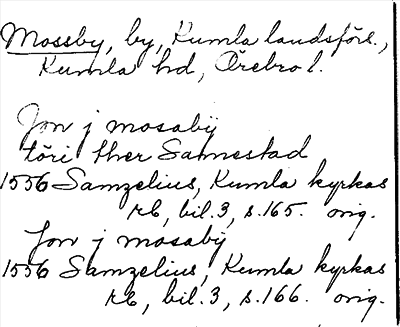 Mossby, by, Kumla landsförs.,
Kumla hd, Örebro l.
Jon j mosaby
töri ther Samestad
1556 Samzelius, Kumla kyrkas
rb, bil. 3, s. 165. orig.
Jon j mosaby
1556 Samzelius, Kumla kyrkas
rb, bil. 3, s. 166. orig.